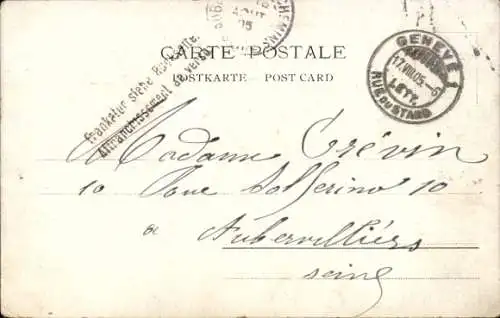 AOUT
05
CHEMIN
CARTE POSTALE
POSTKARTE - POST CARD
Frankatur siehe Rückseite.
Affranchissement au verso
GENÈVE 1
17.VIII.05.-6
LETT.
RUE DU STAND
Madame Crévin
10 Rue Solferino 10
à
Aubervilliérs
Seine